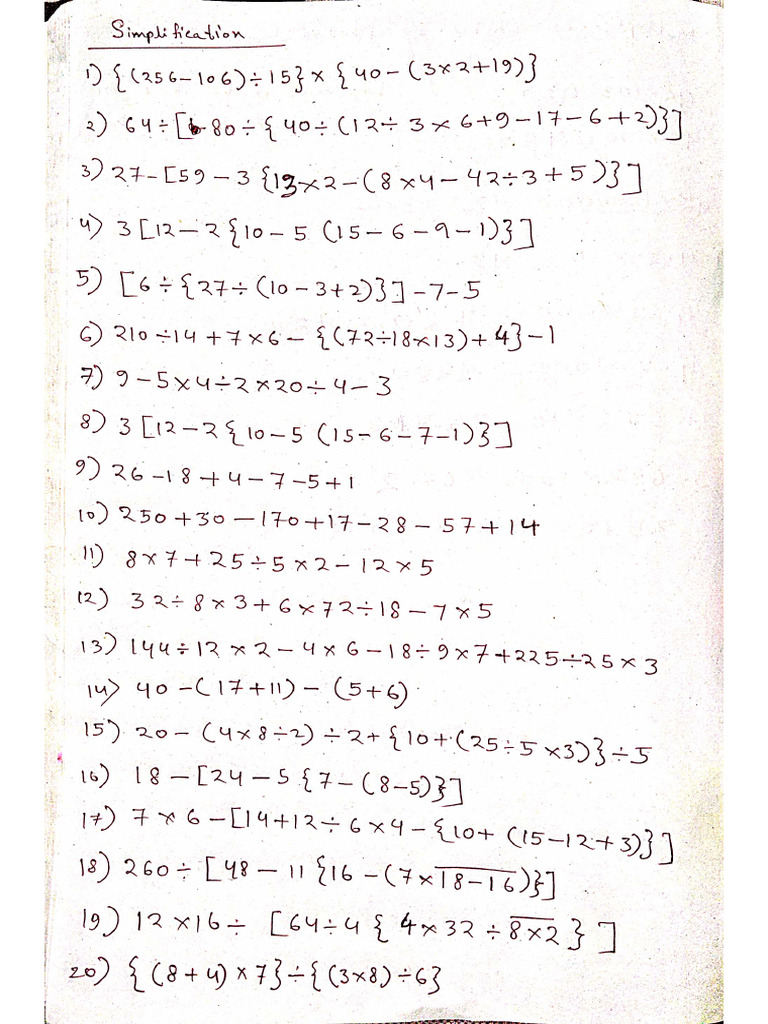 Simplification
1) {(256-106)÷15} × {40-(3×2+19)}
2) 64÷[80÷{40÷(12÷3×6+9-17-6+2)}]
3) 27-[59-3{13×2-(8×4-42÷3+5)}]
4) 3[12-2{10-5(15-6-9-1)}]
5) [6÷{27÷(10-3+2)}]-7-5
6) 210÷14+7×6-{(72÷18×13)+4}-1
7) 9-5×4÷2×20÷4-3
8) 3[12-2{10-5(15-6-7-1)}]
9) 26-18+4-7-5+1
10) 250+30-170+17-28-57+14
11) 8×7+25÷5×2-12×5
12) 32÷8×3+6×72÷18-7×5
13) 144÷12×2-4×6-18÷9×7+225÷25×3
14) 40-(17+11)-(5+6)
15) 20-(4×8÷2)÷2+{10+(25÷5×3)}÷5
16) 18-[24-5{7-(8-5)}]
17) 7×6-[14+12÷6×4-{10+(15-12+3)}]
18) 260÷[48-11{16-(7×1̅8̅-̅1̅6̅)}]
19) 12×16÷[64÷4{4×32÷8̅×̅2̅}]
20) {(8+4)×7}÷{(3×8)÷6}